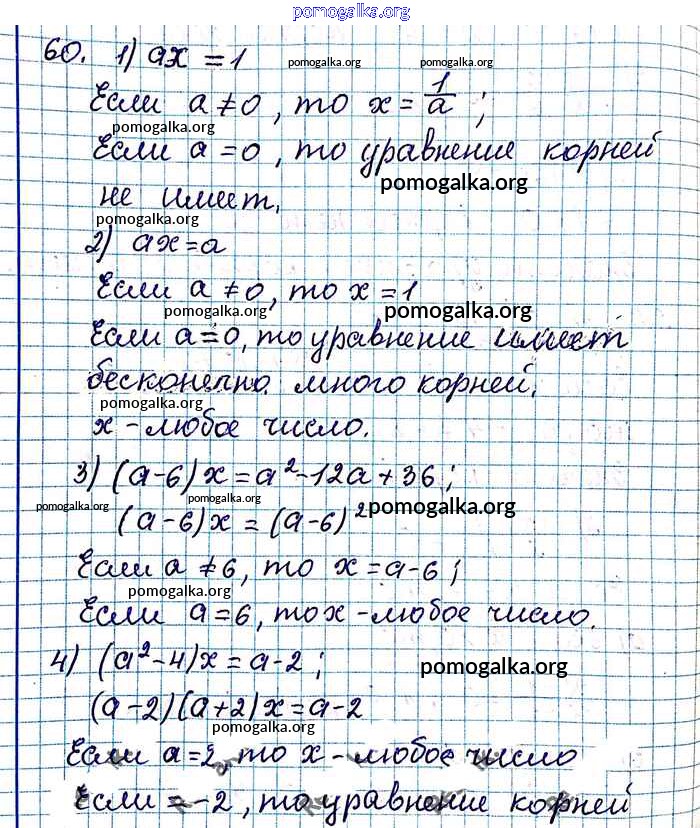 pomogalka.org
60. 1) ax = 1
pomogalka.org pomogalka.org
Если a ≠ 0, то x = 1/a ;
pomogalka.org
Если a = 0, то уравнение корней
pomogalka.org
не имеет.
pomogalka.org
2) ax = a
Если a ≠ 0, то x = 1
pomogalka.org pomogalka.org
Если a = 0, то уравнение имеет
бесконечно много корней.
pomogalka.org
x - любое число.
3) (a-6)x = a² - 12a + 36 ;
pomogalka.org pomogalka.org pomogalka.org
(a-6)x = (a-6)²
Если a ≠ 6, то x = a-6 ;
pomogalka.org
Если a = 6, то x - любое число.
4) (a² - 4)x = a - 2 ;
pomogalka.org
(a-2)(a+2)x = a-2
pomogalka.org
Если a = 2, то x - любое число
Если = -2, то уравнение корней